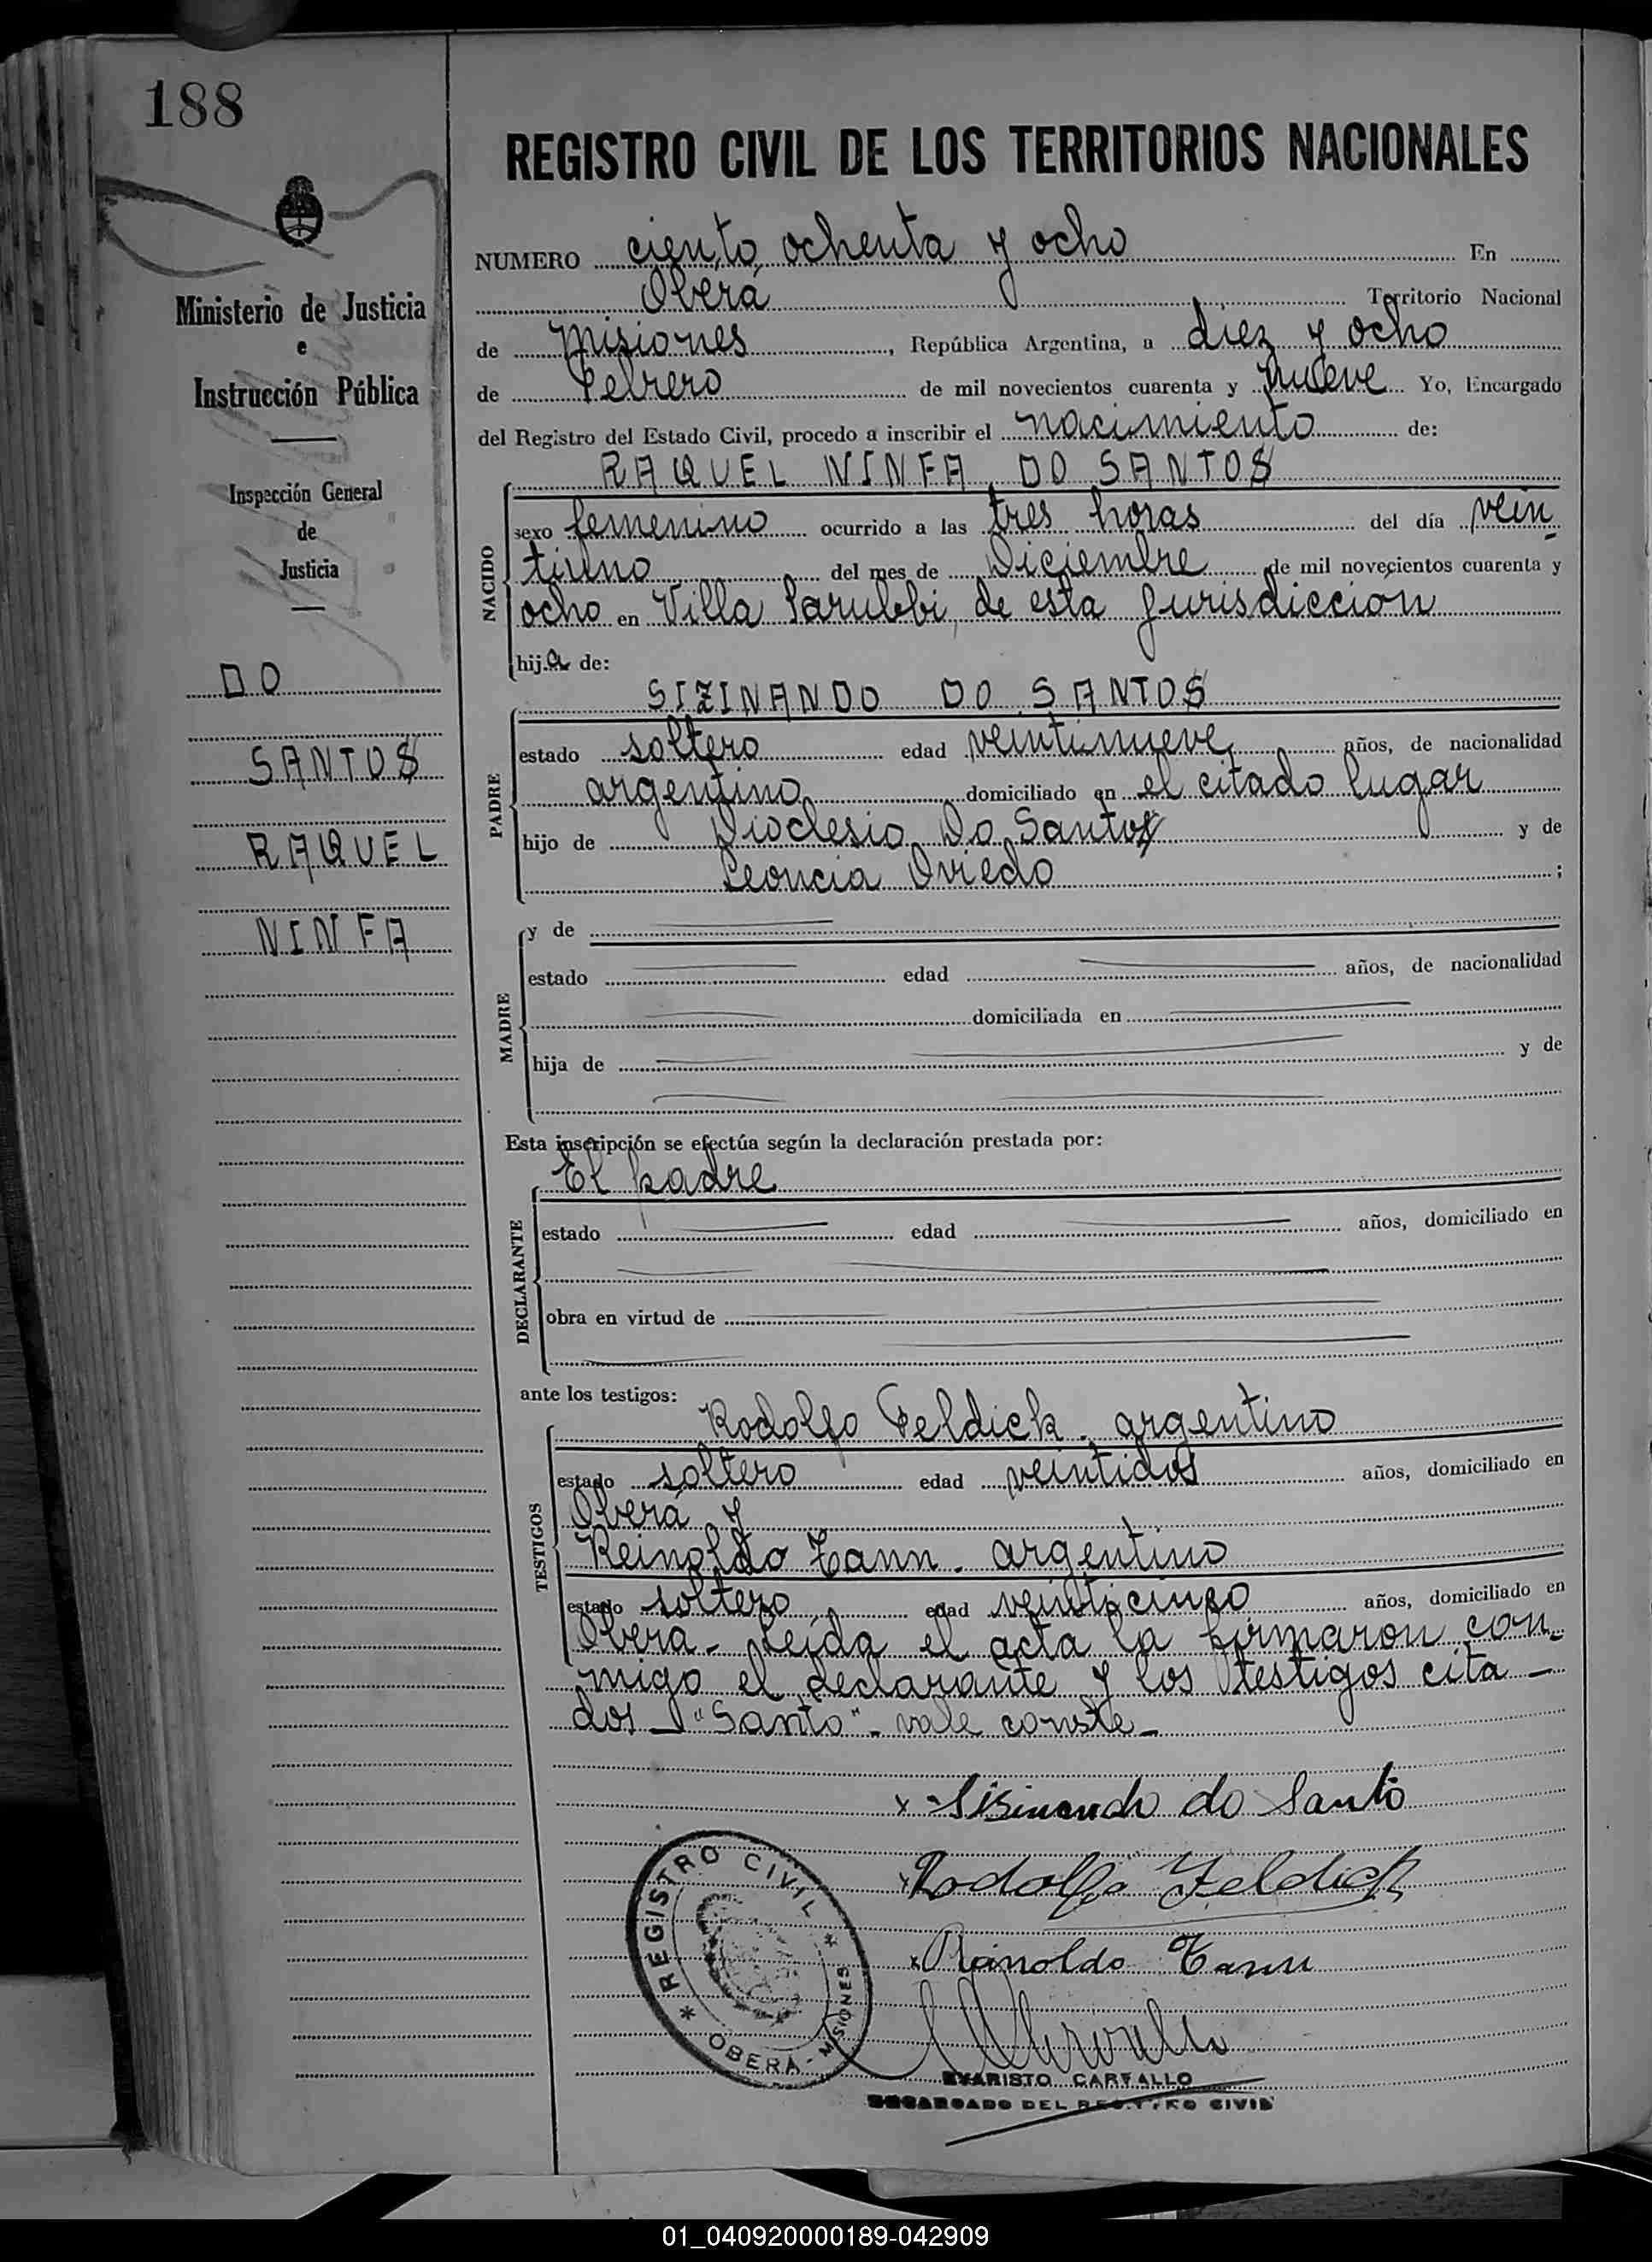 188
REGISTRO CIVIL DE LOS TERRITORIOS NACIONALES
NUMERO ciento ochenta y ocho En
Oberá Territorio Nacional
de Misiones, República Argentina, a diez y ocho
de Febrero de mil novecientos cuarenta y nueve Yo, Encargado
del Registro del Estado Civil, procedo a inscribir el nacimiento de:
RAQUEL NINFA DO SANTOS
NACIDO
sexo femenino ocurrido a las tres horas del día vein-
tiuno del mes de Diciembre de mil novecientos cuarenta y
ocho en Villa Sarubbi, de esta jurisdicción
hija de:
SIZINANDO DO SANTOS
PADRE
estado soltero edad veintinueve años, de nacionalidad
argentino domiciliado en el citado lugar
hijo de Dioclesio Do Santos y de
Leoncia Oviedo ;
MADRE
y de
estado edad años, de nacionalidad
domiciliada en
hija de y de
Esta inscripción se efectúa según la declaración prestada por:
El padre
DECLARANTE
estado edad años, domiciliado en
obra en virtud de
ante los testigos:
Rodolfo Feldick. argentino
TESTIGOS
estado soltero edad veintidos años, domiciliado en
Oberá y
Reinoldo Tann. argentino
estado soltero edad veinticinco años, domiciliado en
Oberá- Leída el acta la firmaron con-
migo el declarante y los testigos cita-
dos- "Santo"- vale conste-
x Sisinando do Santo
x Rodolfo Feldick
x Reinoldo Tann
REGISTRO CIVIL
OBERÁ - MISIONES
EVARISTO CARVALLO
ENCARGADO DEL REGISTRO CIVIL
Ministerio de Justicia
e
Instrucción Pública
Inspección General
de
Justicia
DO
SANTOS
RAQUEL
NINFA
01_040920000189-042909